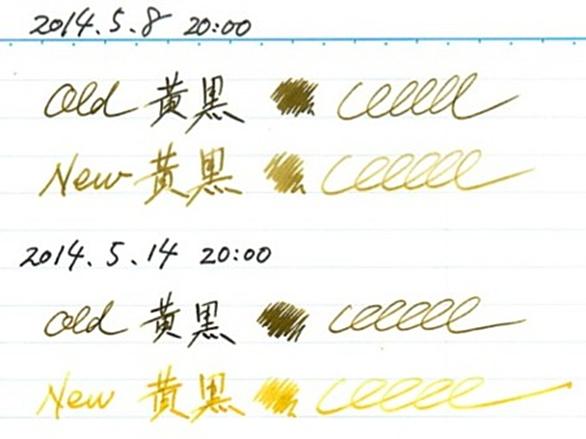 2014.5.8 20:00
Old 黄黒
New 黄黒
2014.5.14 20:00
Old 黄黒
New 黄黒